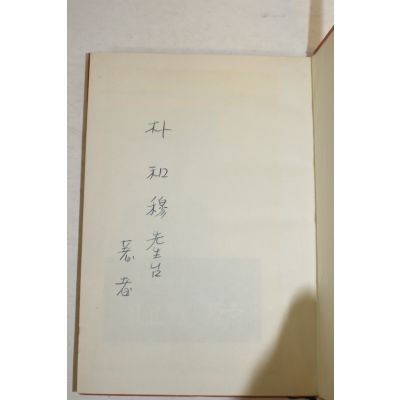 朴和穆先生台
著者